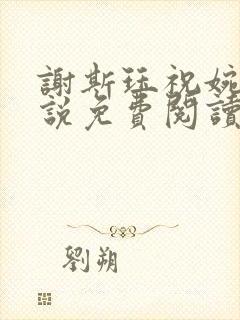 謝斯珏祝婉
說免費閱讀
劉朔